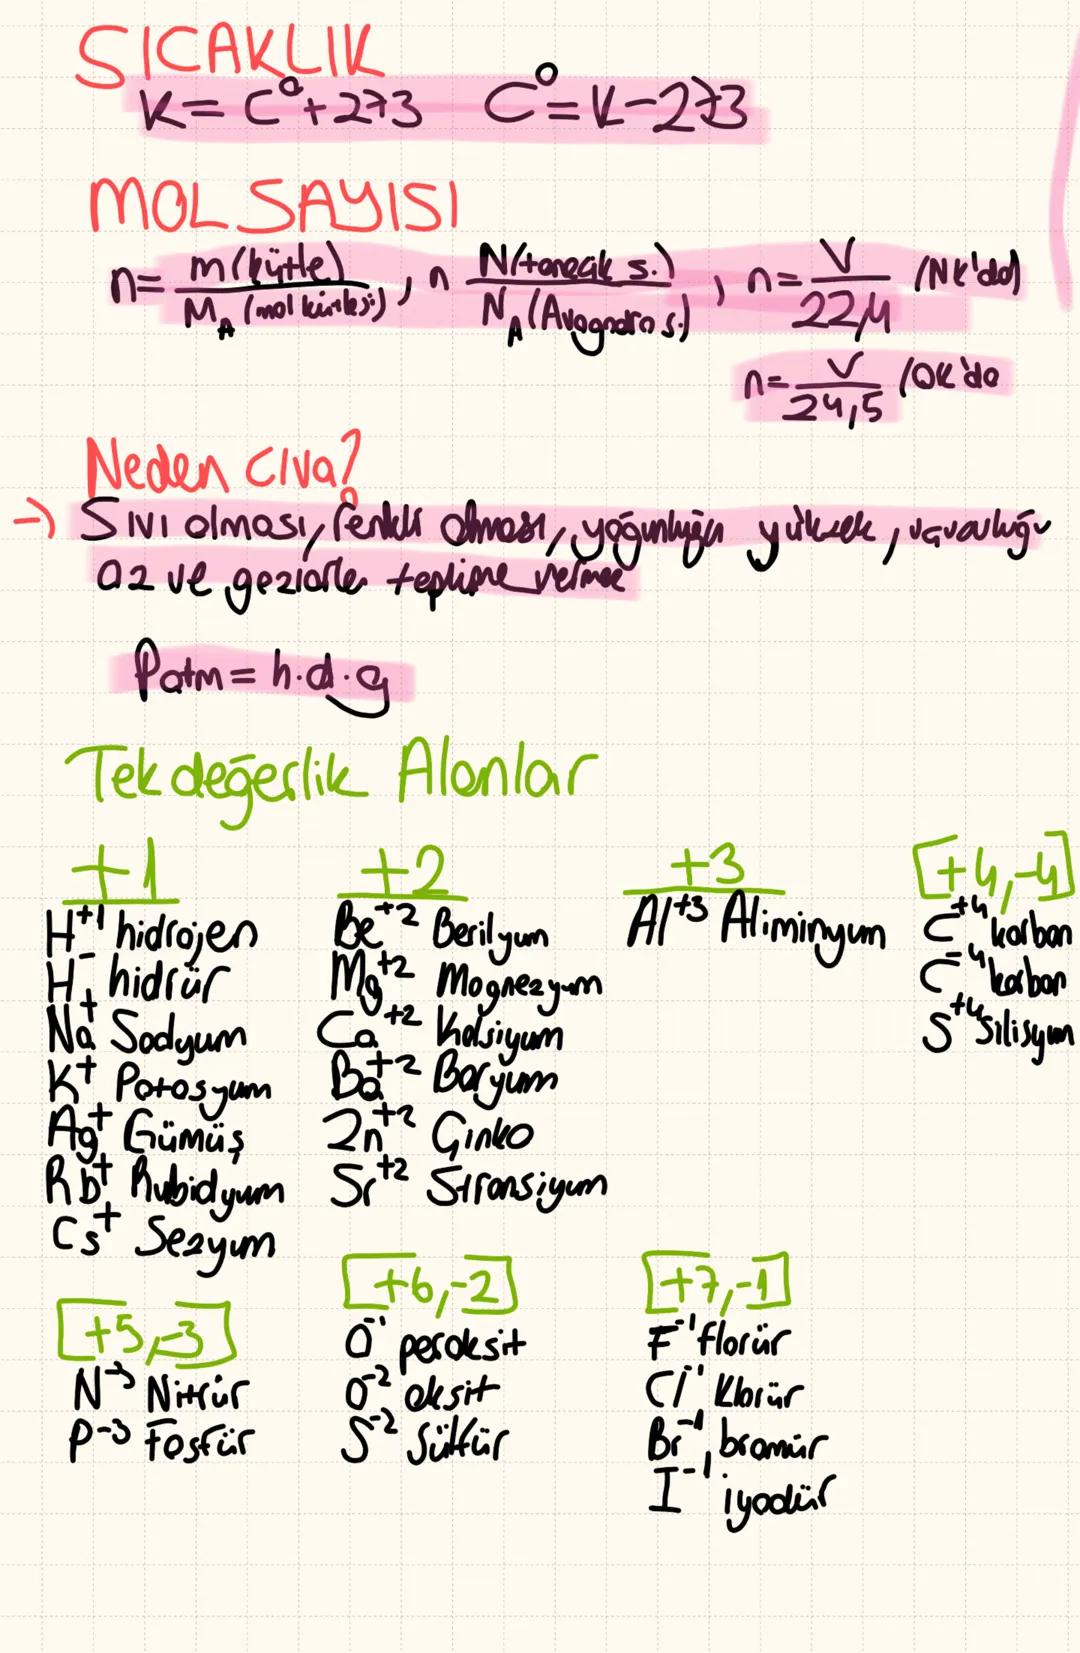 SICAKLIK
K = C° + 273 C° = K - 273
MOL SAYISI
n = m (kütle) / MA (mol kütlesi), n N (tanecik s.) / NA (Avogadro s.), n = V / 22,4 (NK'da)
n = V / 24,5 (OK'da
Neden Cıva?
→ Sıvı olması, renkli olması, yoğunluğu yüksek, uçuculuğu
az ve gazlarla tepkime vermez
Patm = h.d.g
Tek değerlik Alanlar
+1 +2 +3 [+4,-4]
H+1 hidrojen Be+2 Berilyum Al+3 Aliminyum C+4 karbon
H- hidrür Mg+2 Magnezyum C-4 karbon
Na+ Sodyum Ca+2 Kalsiyum S+4 Silisyum
K+ Potasyum Ba+2 Baryum
Ag+ Gümüş Zn+2 Çinko
Rb+ Rubidyum Sr+2 Stransiyum
Cs+ Sezyum
[+5,-3] [+6,-2] [+7,-1]
N-3 Nitrür O-1 peroksit F-1 florür
P-3 Fosfür O-2 oksit Cl-1 Klorür
S-2 Sülfür Br-1 bromür
I-1 iyodür